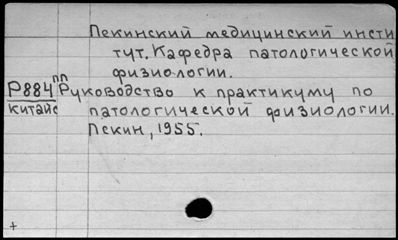 Пекинский медицинский инсти
тут. Кафедра патологической
физиологии.
пп
Р884 Руководство к практикуму по
китайс патологической физиологии.
Пекин, 1955.
+